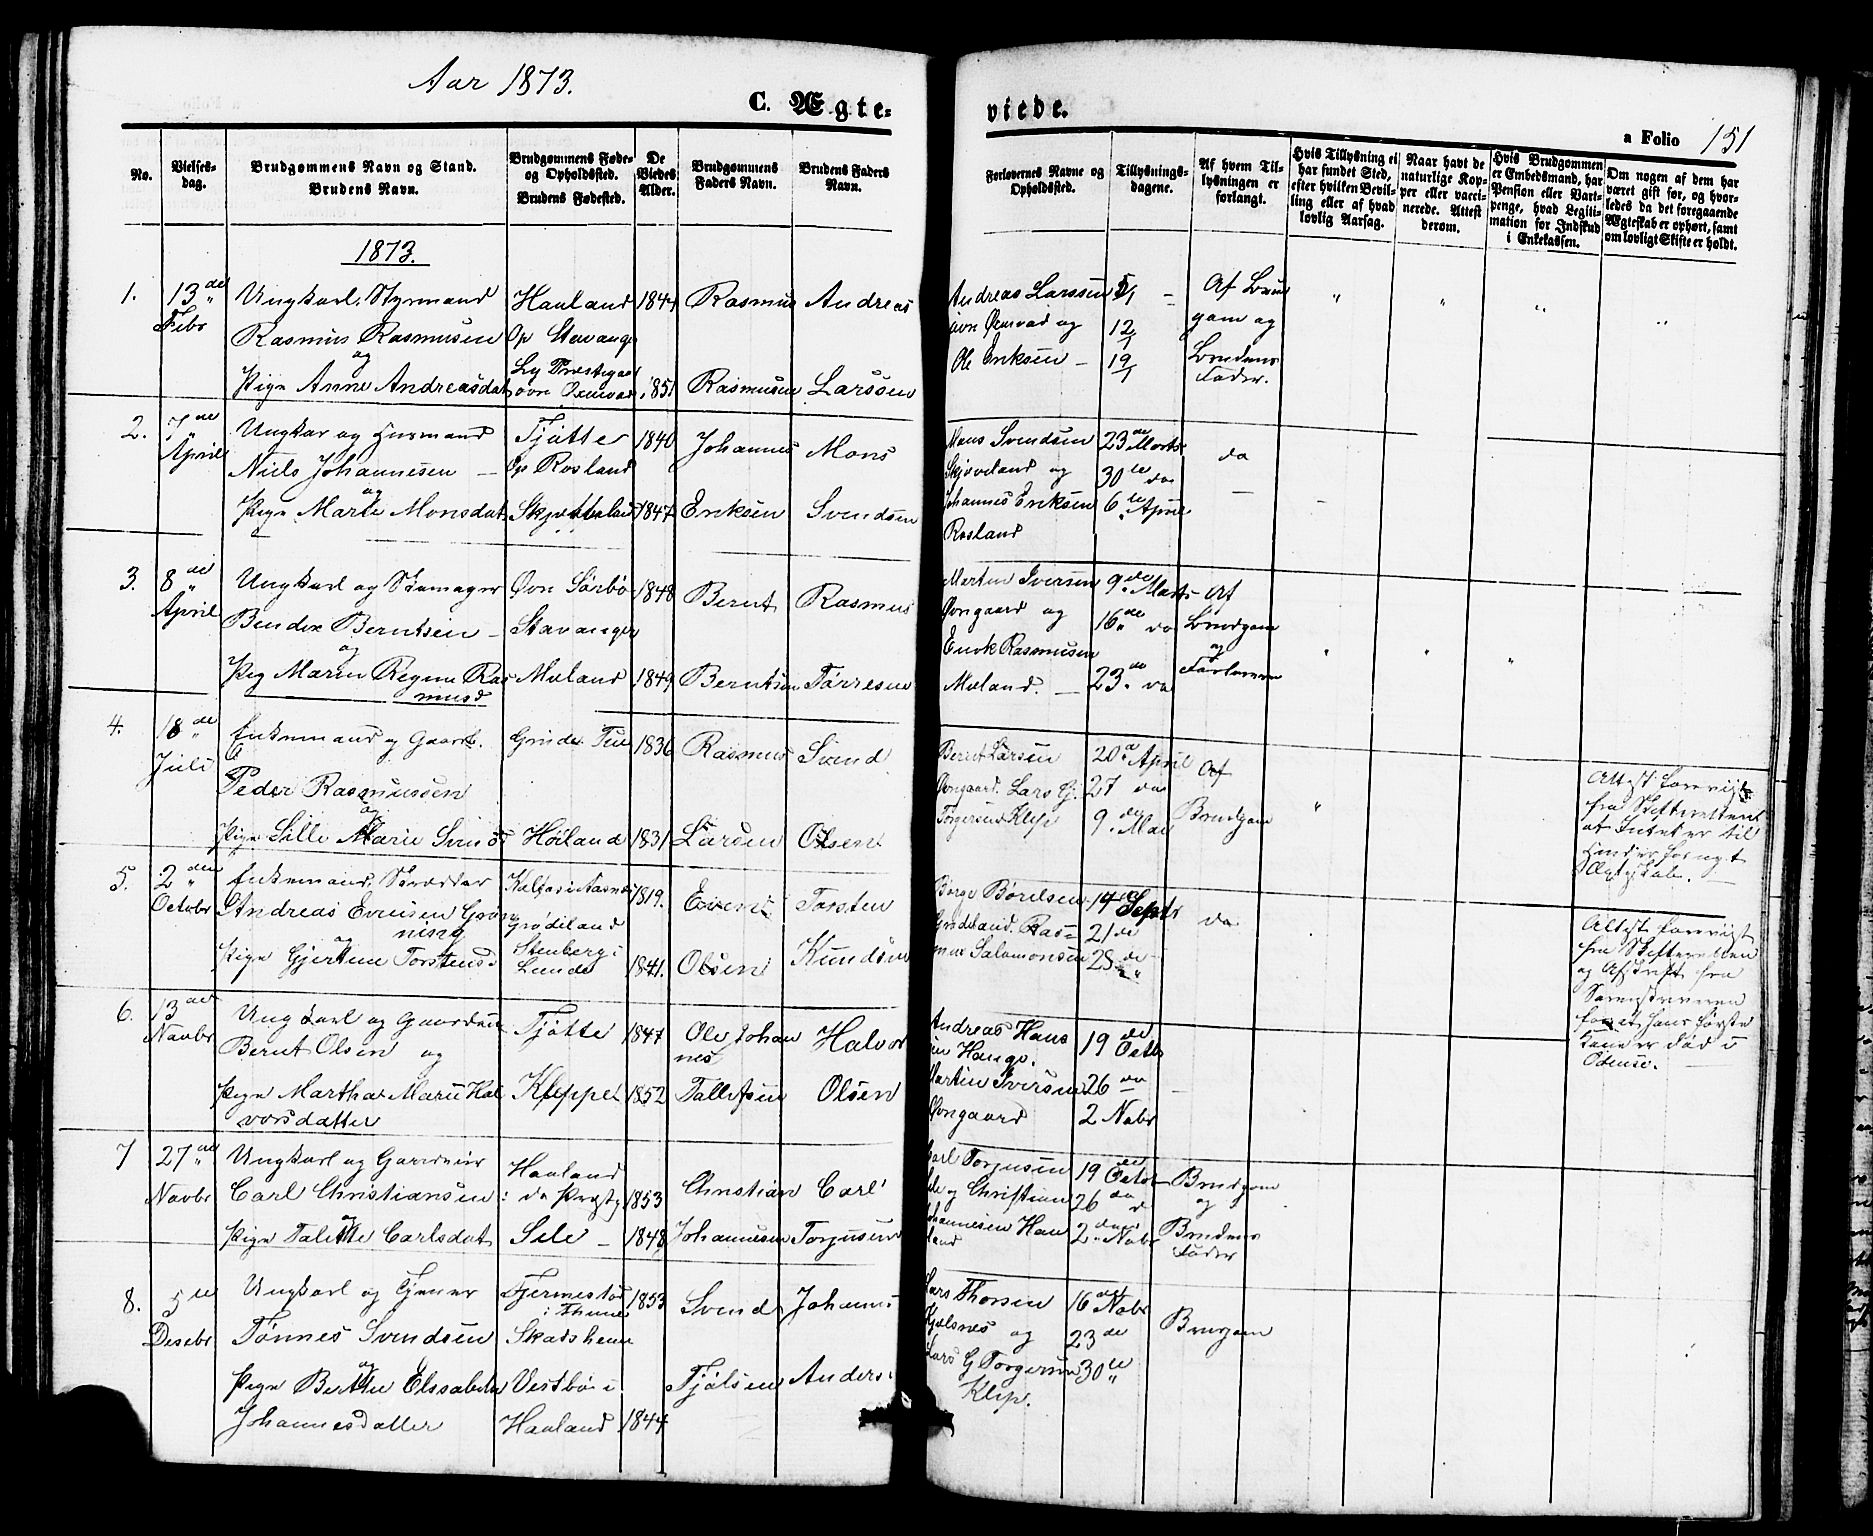 Aar 1873.
C. Ægte-
viede.
a Folio 151
No.
Vielses-
dag.
Brudgommens Navn og Stand.
Brudens Navn.
Brudgommens Føde-
og Opholdssted.
Brudens Fødested.
De
Viedes
Alder.
Brudgommens
Faders Navn.
Brudens Faders
Navn.
Forlovernes Navne og
Opholdssted.
Tillysnings-
dagene.
Af hvem Til-
lysningen er
forlangt.
Hvis Tillysning ei
har fundet Sted,
efter hvilken Bevil-
ling eller af hvad
lovlig Aarsag.
Naar havt de
naturlige Kop-
per eller vacci-
nerede. Attest
derom.
Hvis Brudgommen
er Embedsmand, har
Pension eller Vart-
penge, hvad Legiti-
mation for Indskud
i Enkekassen.
Om nogen af dem har
været gift før, og hvor-
ledes da det foregaaende
Ægteskab er ophørt, samt
om lovligt Skifte er holdt.
1873.
1.
13de
Febr
Ungkarl. Styrmand
Rasmus Rasmusen
og
Pige Anne Andreasdat
Haaland
Op Stavange
1844
1851
Rasmus
Rasmusen
Andreas
Larssen
Andreas Larssen
øvre Øxnevad og
Ole Eriksen –
5/1 –
12/1
19/1
Af Brud
gom og
Brudens
Fader.
2.
7de
April
Ungkar og Husmand
Niels Johannesen –
og
Pige Marte Monsdat
Tjøtte
Op Rosland
1840
1847
Johannes
Eriksen
Mons
Svendsen
Mons Svendsen
og
Johannes Eriksen
Rosland
23de Marts
30te do
6te April
do
3.
8de
April
Ungkarl og Skomager
Bendix Berntsen –
og
Pig Maren Regine Ras
musd
Øvr Sørbø
Stavanger
Mæland
1848
1849
Bernt
Berntsen
Rasmus
Tørresen
Morten Iversen
Øvngaard og
Enok Rasmusen
Mæland. –
9de Marts
16de do
23de do
Af
Brudgom
og
Forlovere
4.
18de
Juli
Enkemand og Gaarb.
Peder Rasmussen
og
Pige Sille Marie Svends
Grude Tue
Høiland
1836
1831
Rasmus
Larsen
Svend
Olsen
Bernt Larsen
Øvngaard. Lars G.
Torgersen Klep
20de April
27 do
9de Mai
Af
Brudgom
Attest forevist
fra Skifteretten
at Intet er til
Hinder for nyt
Ægteskab.
5.
2den
Octobr
Enkemand. Skrædder
Andreas Evensen Grøn
ning
og
Pige Gjertine Torstensd
Grødeland
Stenberg i
Lunde
1819.
1841.
Even
Olsen
Torsten
Knudsen
Børge Børelsen
Grødeland. Ras-
mus Salomonsen
14 Septr
21de
28de
do
Attest forevist
fra Skifteretten
og Afskrift fra
Sorenskriveren
for at hans første
Kone er død i
Odense.
6.
13de
Novbr
Ungkarl og Gaardm
Bernt Olsen og
Pige Martha Marie Hal
vorsdatter
Tjøtte
Kleppe
1847
1852
Ole Johan
nes
Tallefsen
Halvor
Olsen
Andreas Hans
sen Hauge.
Martin Iversen
Øvngaard
19de Octbr
26 do
2 Nobr
7
27de
Novbr
Ungkarl og Gaardm
Carl Christiansen
og
Pige Talette Carlsdat
Haaland
i do Præstg
Sele –
1853
1848
Christian
Johannesen
Carl
Torjusen
Carl Torjusen
Sele og Christian
Johannesen Haa
land
19de Octbr
26 do
2den Nobr
Brudgom
og
Brudens
Fader
8.
5te
Desebr
Ungkarl og Tjener
Tønnes Svendsen
og
Pige Berthe Elssabeth
Johannesdatter
Fjermestad
i Thime
Skadsheim
Vestbø i
Haaland
1853
1844
Svend
Johannes
Anders
Lars Thorsen
og
Lars G Torgersen
Klep.
16de Nobr
23de
30te
Brudgom